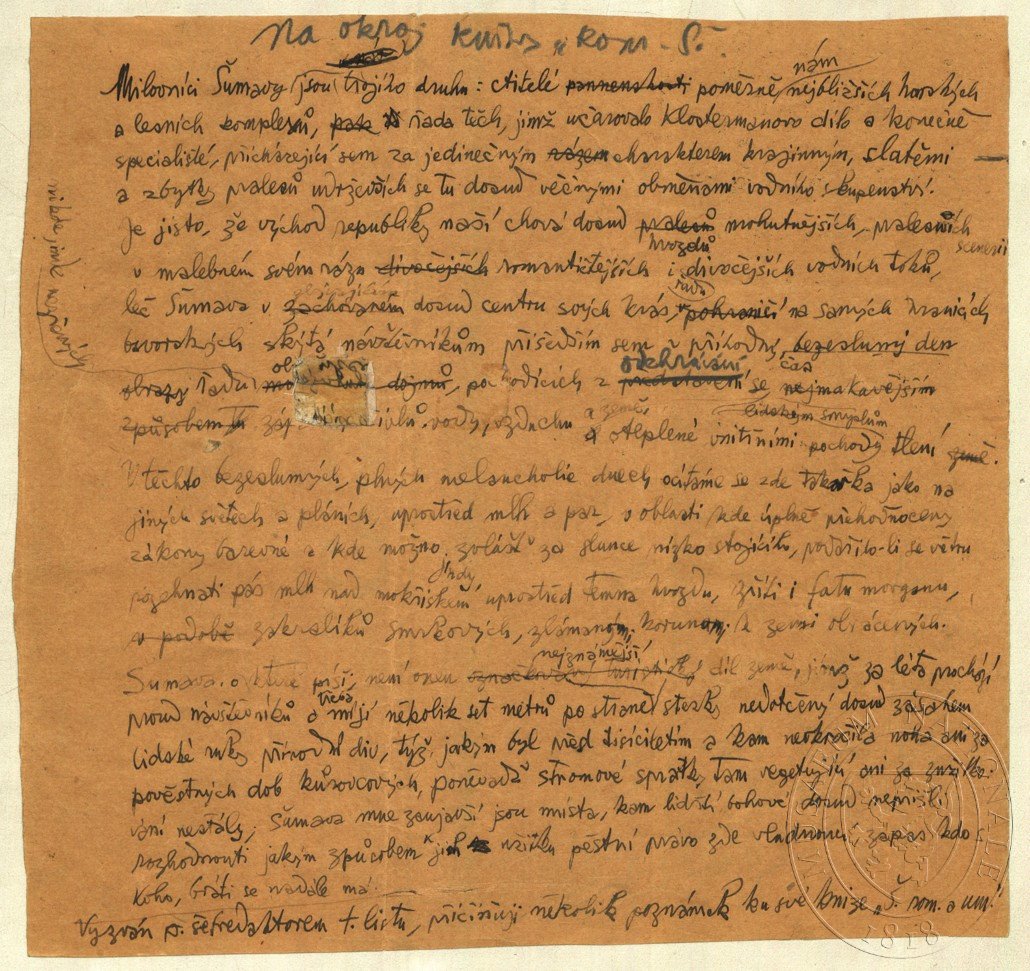 Na okraj knihy „kom. S."
nám
Milovníci Šumavy jsou trojího druhu: ctitelé panenskosti poměrně nejbližších horských
a lesních komplexů, pak řada těch, jimž učarovalo Klostermanovo dílo a konečně
specialisté, přicházející sem za jedinečným rázem charakterem krajinným, slatěmi
a zbytky pralesů udrževších se tu dosud věčnými obměnami vodního skupenství.
Je jisto, že východ republiky naší chová dosud pralesů mohutnějších, pralesních
hvozdů scenerií
v malebném svém rázu divočejších romantičtějších i divočejších vodních toků,
řadu
leč Šumava v zachovaném dosud centru svých krás, v pohraničí na samých hranicích
bavorských skýtá návštěvníkům přišedším sem v příhodný, bezeslunný den
nikde jinde
odehrávání čas
obrazy řadu dojmů, pocházících z se nejmakavějším
a země, lidským smyslům
způsobem vody, vzduchu a oteplené vnitřními pochody tlení země.
V těchto bezeslunných, plných melancholie dnech ocitáme se zde takořka jako na
jiných světech a pláních, uprostřed mlh a par, v oblasti kde úplně přehodnoceny
zákony barevné a kde možno, zvlášť za slunce nízko stojícího, podařilo-li se větru
jindy,
rozehnati pás mlh nad mokřiskem uprostřed temna hvozdu, zříti i fatu morganu,
v podobě zakrslíků smrkových, zlámanými korunami k zemi obrácených.
nejznámější
Šumava, o které píši, není onen díl země, jímž za léta prochází
třeba
proud návštěvníků a míjí několik set metrů po straně stezky nedotčený dosud zásahem
lidské ruky přírodní div, týž, jakým byl před tisíciletím a kam nevkročila noha ani za
pověstných dob kůrovcových, poněvadž stromové spratky tam vegetující ani za zužitko-
vání nestály; Šumava mne zaujavší jsou místa, kam lidští bohové dosud nepřišli
rozhodnouti jakým způsobem jich užitku pěstní právo zde vládnoucí, zápas kdo
koho, bráti se nadále má.
Vyzván p. šéfredaktorem t. listu, přičiňuji několik poznámek ku své knize „Š. rom. a um."